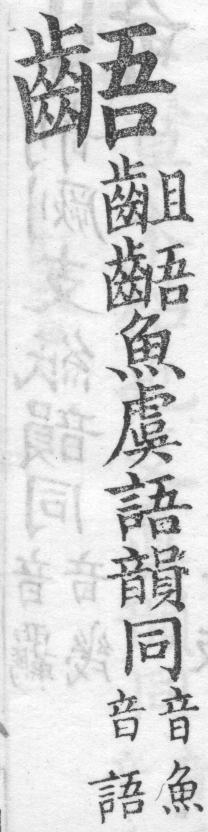 齬
齟齬魚虞語韻同
音魚
音語